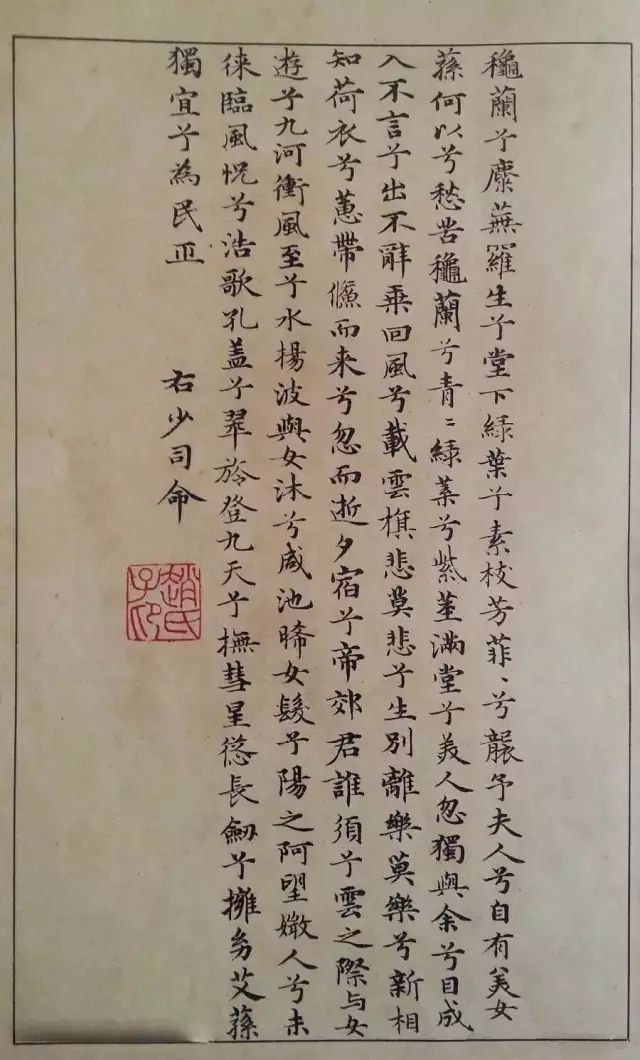 穐蘭兮麋蕪羅生兮堂下緑葉兮素枝芳菲〻兮襲予夫人兮自有美女
蓀何以兮愁苦穐蘭兮青〻緑葉兮紫莖滿堂兮美人忽獨與余兮目成
入不言兮出不辭乘回風兮載雲旗悲莫悲兮生別離樂莫樂兮新相
知荷衣兮蕙帶儵而来兮忽而逝夕宿兮帝郊君誰須兮雲之際与女
遊兮九河衝風至兮水揚波與女沐兮咸池晞女髮兮陽之阿望媺人兮未
徠臨風怳兮浩歌孔盖兮翠旍登九天兮撫彗星慫長劒兮擁幼艾蓀
獨宜兮為民正
右少司命
趙氏子印